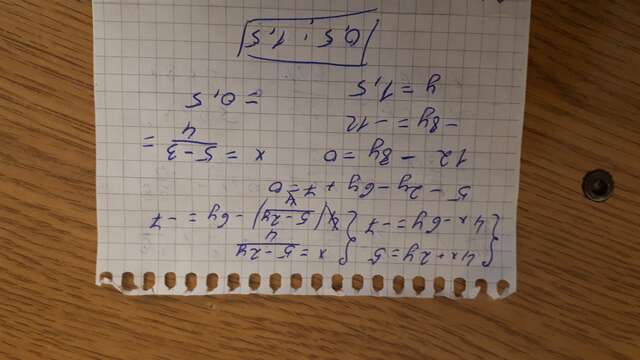 { 4x + 2y = 5 { x = 5 - 2y / 4
{ 4x - 6y = -7 { 4 ( 5 - 2y / 4 ) - 6y = -7
5 - 2y - 6y + 7 = 0
12 - 8y = 0 x = 5 - 3 / 4 =
-8y = -12 = 0,5
y = 1,5
0,5 ; 1,5